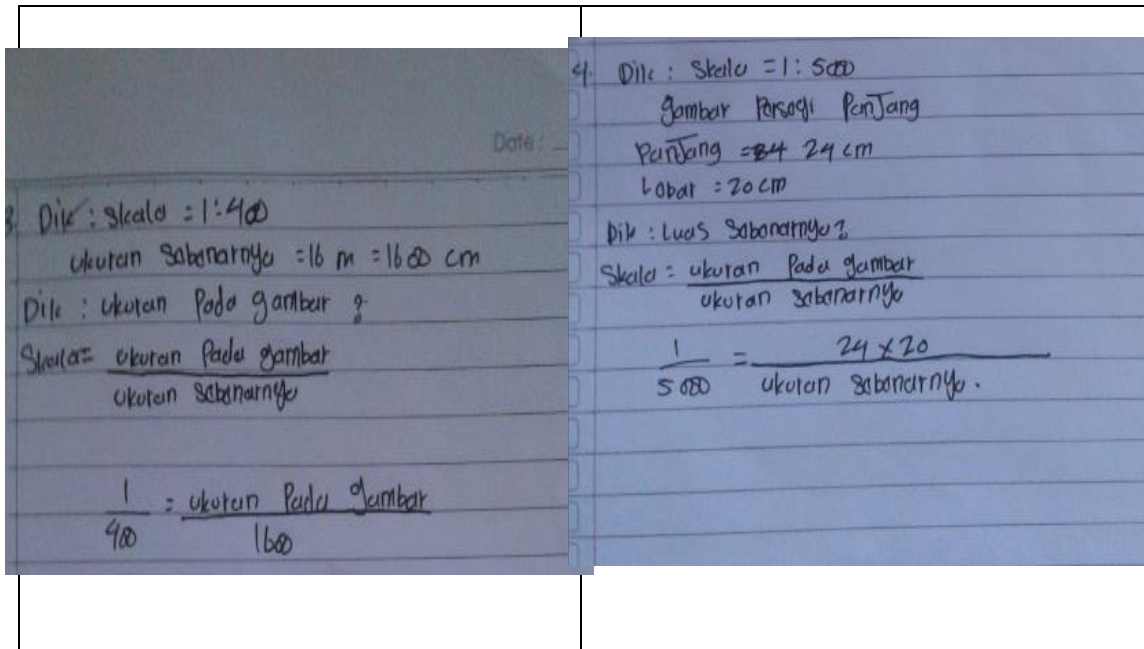 Date:
3. Dik : Skala = 1:400
ukuran Sabenarnya = 16 m = 1600 cm
Dik : ukuran Pada gambar ?
Skala = ukuran Pada gambar
ukuran Sabenarnya
1 = ukuran Pada Gambar
400 1600
4. Dik : Skala = 1 : 5000
gambar Persegi PanJang
PanJang = 24 cm
Lebar : 20 cm
Dik : Luas Sabenarnya ?
Skala = ukuran Pada gambar
ukuran sabenarnya
1 = 24 x 20
5000 ukuran sabenarnya.